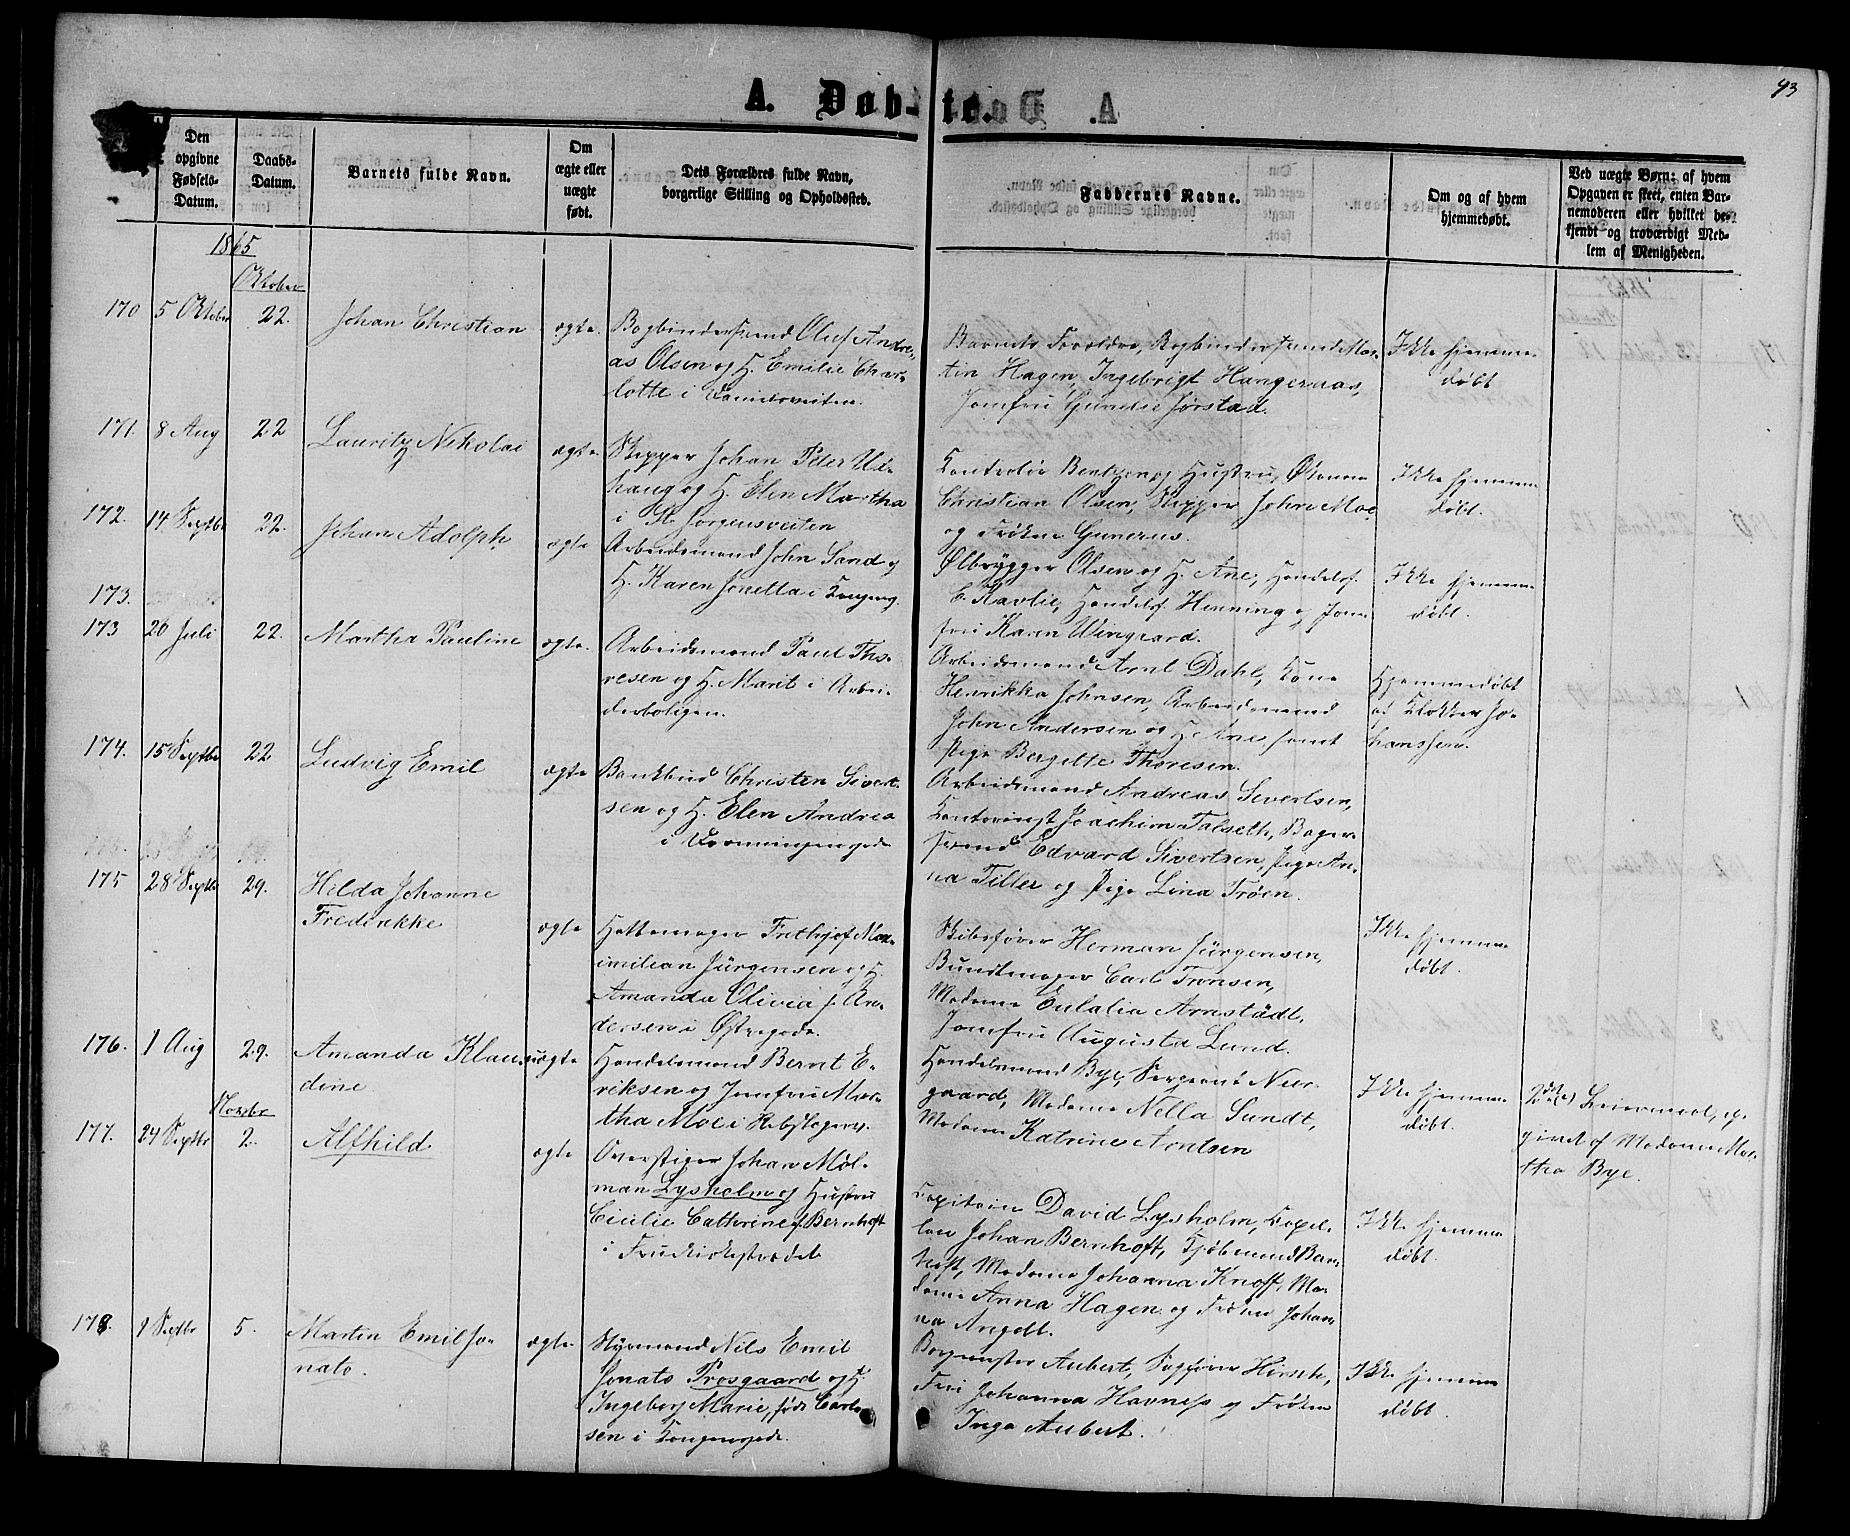 93
A. Døb-te.
Den opgivne Fødsels-Datum.
Daabs-Datum.
Barnets fulde Navn.
Om ægte eller uægte født.
Dets Forældres fulde Navn, borgerlige Stilling og Opholdssted.
Faddernes Navne.
Om og af hvem hjemmedøbt.
Ved uægte Børn: af hvem Opgaven er skeet, enten Barnemoderen eller hvilket bekjendt og troværdigt Medlem af Menigheden.
1865
Oktober
170 5 Oktober 22. Johan Christian ægte Bogbindersvend Oluf Andre-
as Olsen og H. Emilie Char-
lotte i Danielsveiten.
Barnets Forældre, Bogbindersvend Mar-
tin Hagen, Ingebrigt Hangeraas,
Jomfru Gunelie Jørstad.
Ikke hjemme-
døbt
171. 8 Aug 22 Lauritz Nikolai ægte Skipper Johan Peter Ui-
haug og H. Elen Martha
i St. Jørgensveiten
Kontrolør Bentzen og Hustru,
Christian Olsen, Skipper John Moe,
og Frøken Gunerus.
Ikke hjemme
døbt.
172. 14 Septbr 22. Johan Adolph ægte Arbeidsmand John Sand og
H. Karen Jonetta i Kongensg.
Ølbrygger Olsen og H. Ane, Handelsf.
C. Kavlie, Handelsf. Henning og Jom-
fru Karen Wingaard.
Ikke hjemme
døbt.
173.
173 26 Juli 22. Martha Pauline ægte Arbeidsmand Paul Tho-
resen og H. Marit i Arbei-
derboligen.
Arbeidsmand Arnt Dahl, Kone
Henrikka Johnsen, Arbeidsmand
John Andersen og H. Ane samt
Pige Bergitte Thoresen.
Hjemmedøbt
af Klokker Jo-
hanssen.
174. 15 Septbr 22 Ludvig Emil ægte Bankbud Christen Sivert-
sen og H. Elen Andrea
i Dronningensgade
Arbeidsmand Andreas Sivertsen,
Kontorist Joachim Talseth, Bager-
svend Edvard Sivertsen, Pige An-
na Tiller og Pige Lina Trøen.
175 28 Septbr 29. Hilda Johanne
Frederikke ægte Hattemager Frithjof Max-
imilian Jürgensen og H.
Amanda Olivia f. An-
dersen i Østregade.
Skibsfører Herman Jürgensen,
Bundtmager Carl Tronsen,
Madame Eulalia Arnstädt,
Jomfru Augusta Lund.
Ikke hjemme-
døbt.
176. 1 Aug 29. Amanda Klau-
dine uægte Handelsmand Bernt E-
riksen og Jomfru Mar-
tha Moe i Rebslagerv.
Handelsmand Bye, Sergeant Neer-
gaard, Madame Nella Sundt,
Madame Katrine Arntsen
Ikke hjemme
døbt.
Leiermaal, op-
givet af Madame Mar-
tha Bye.
Novbr
177. 24 Septbr 2. Alfhild ægte Overstiger Johan Møl-
man Lysholm og Hustru
Cicilie Cathrine f. Bernhoft
i Fruekirkestrædet
Capitain David Lysholm, Capel-
lan Johan Bernhoft, Kjøbmand Bern-
hoft, Madame Johanna Knoff, Ma-
dame Anna Hagen og Frøken Johan-
na Angell.
Ikke hjemme
døbt.
178. 1 Septbr 5. Martin Emil Jo-
nato. ægte Styrmand Nils Emil
Jonato Prosgaard og H.
Ingeborg Marie, født Carl-
sen i Kongensgade.
Borgmester Aubert, Sagfører Hirsch,
Fru Johanna Havness og Frøken
Inga Aubert.
Ikke hjemme
døbt.